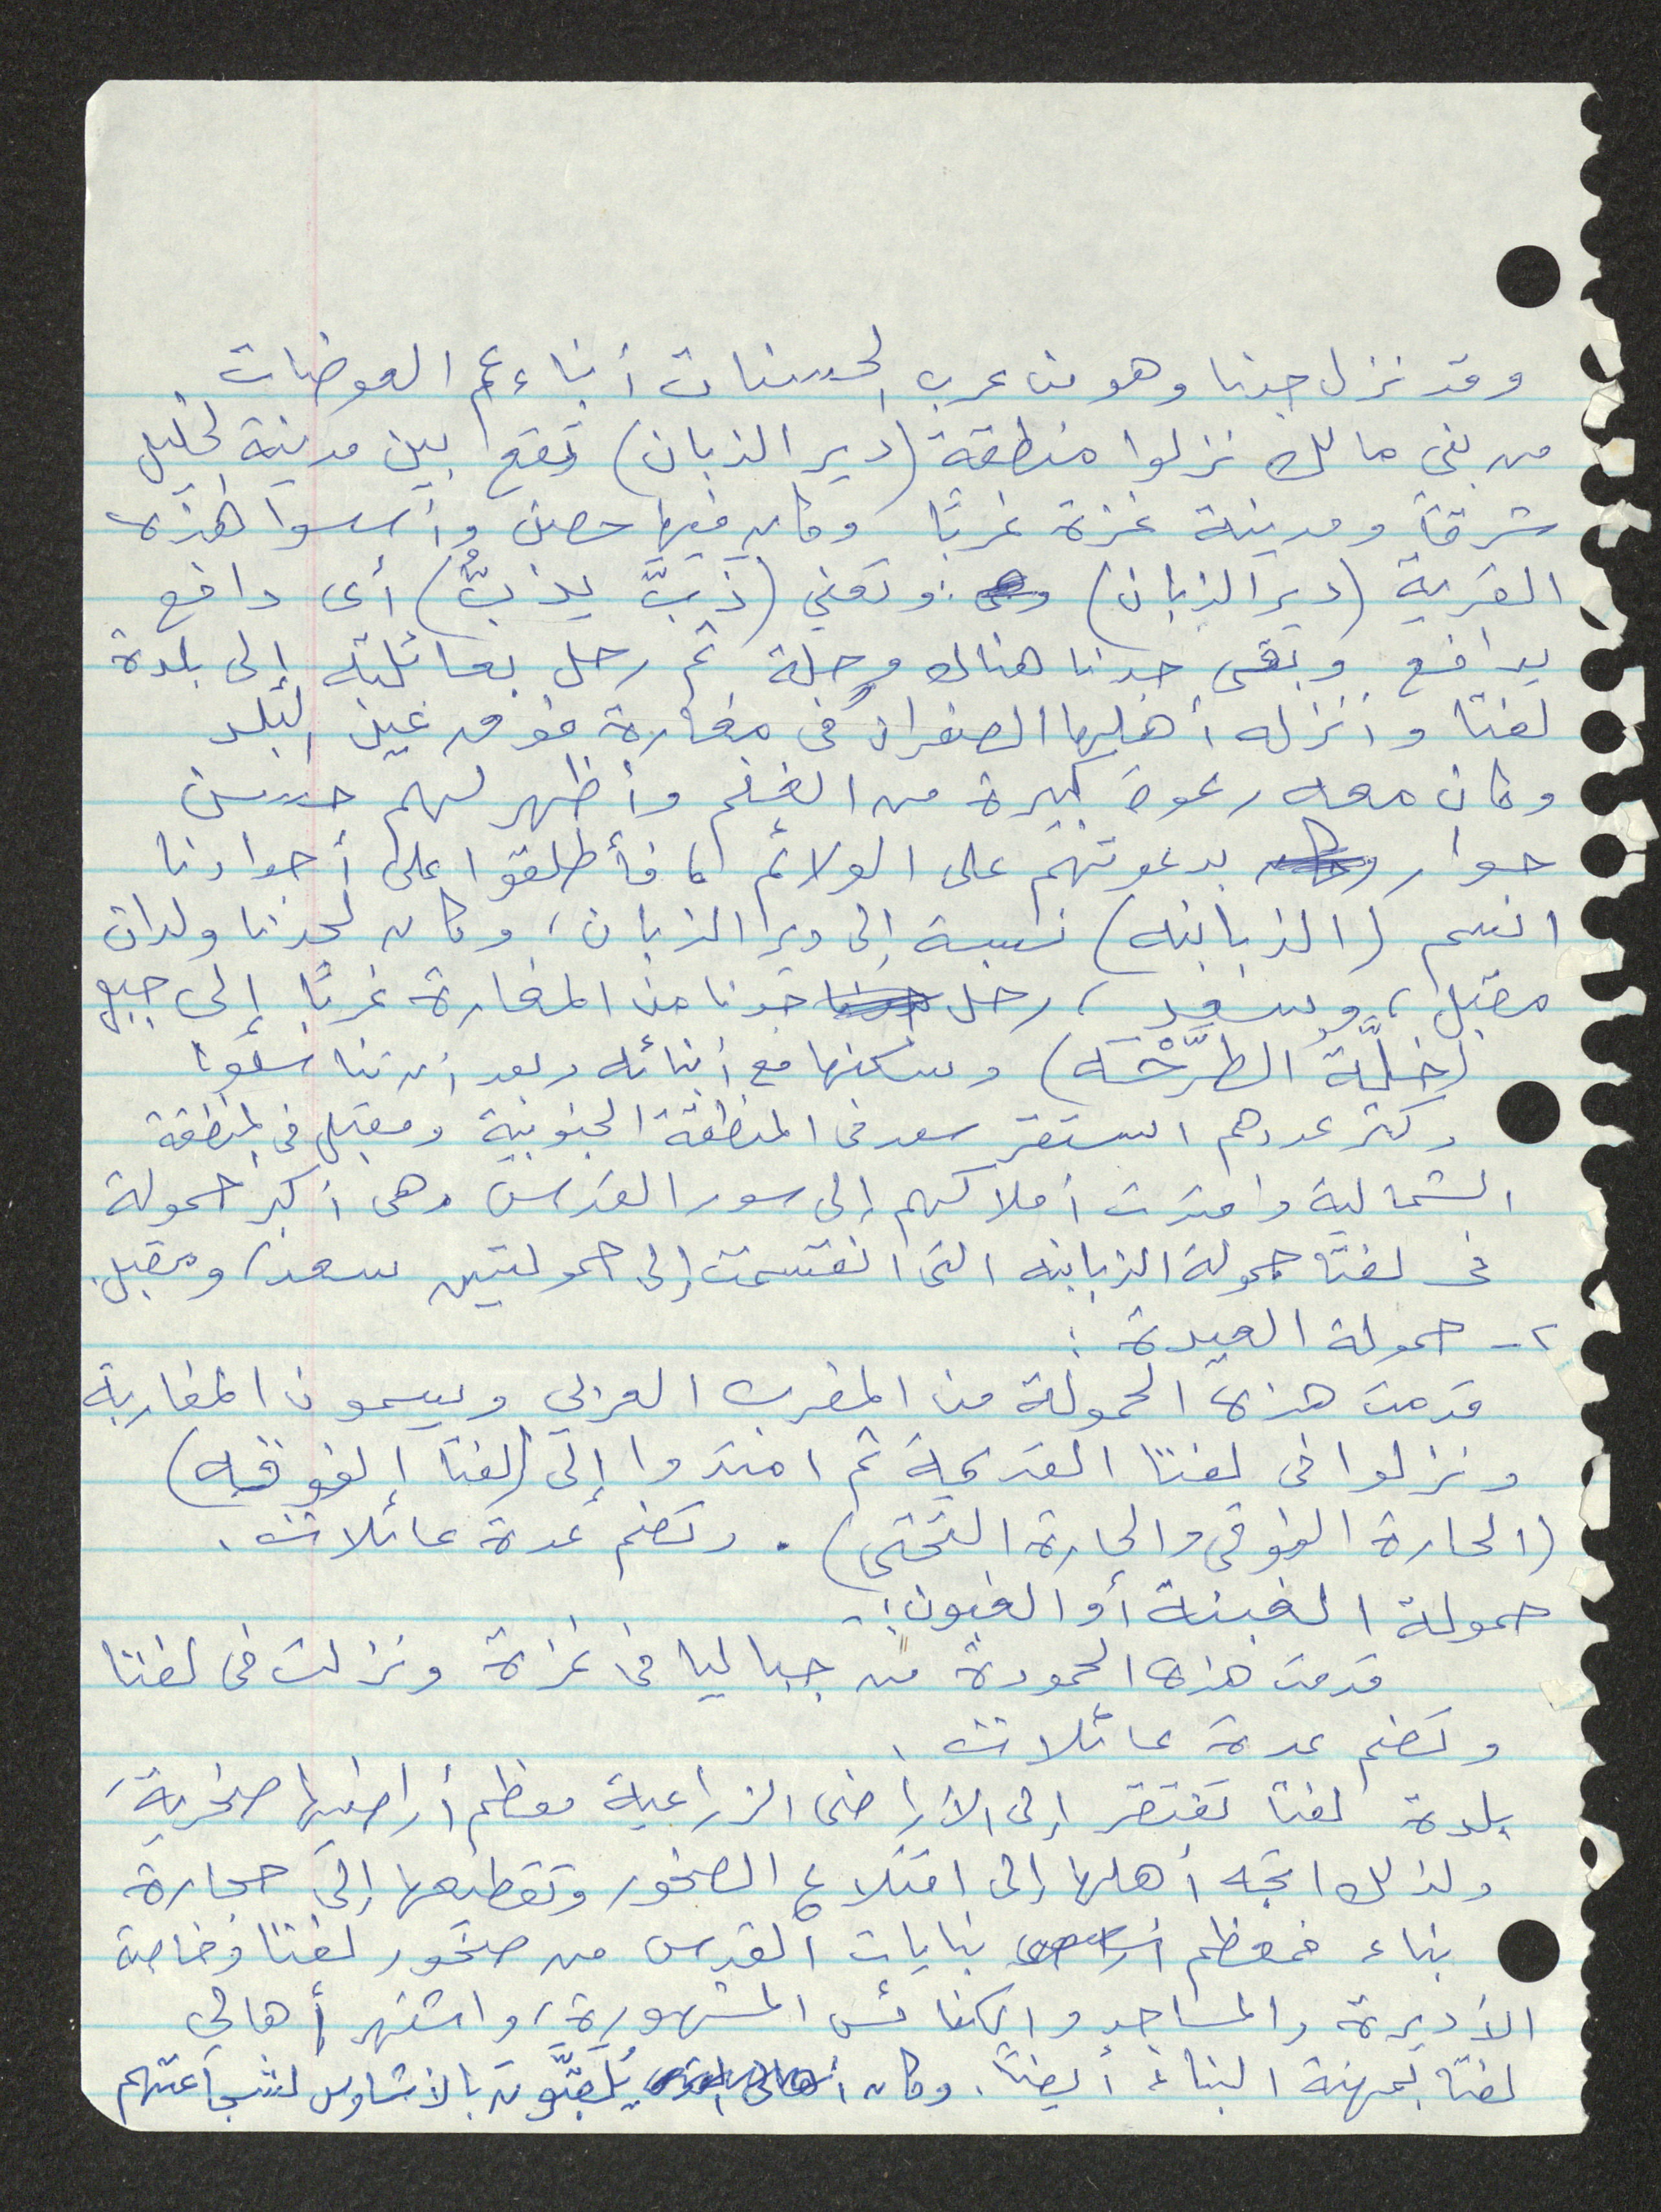 وقد نزل جدنا وهو من عرب الحسنات أبناء عم العوضات
من بنى مالك نزلوا منطقة (دير الذبان) تقع بين مدينة الخليل
شرقاً ومدينة غزة غربًا وكان فيها حصن وأسسوا هذه
القرية (دير الذبان) وتعني (ذَبَّ يذبُّ) أى دافع
يدافع وبقى جدنا هناك مرحلة ثم رحل بعائلته إلى بلدة
لفتا وأنزله أهلها الصفران فى مغارة فوق عين البلد
وكان معه رعوة كبيرة من الغنم وأظهر لهم حسن
جوار بدعوتهم على الولائم فأطلقوا على أجدادنا
اسم (الذبابنه) نسبة إلى دير الذبان، وكان لجدنا ولدان
مقبل، وسعد، رحل جدنا من المغارة غربًا إلى جبع
(خلَّة الطرَّحْه) وسكنها مع أبنائه وبعد أن تناسلوا
وكثر عددهم استقر سعد فى المنطقة الجنوبية ومقبل فى المنطقة
الشمالية وامتدت أملاكهم إلى سور القدس وهى أكبر حمولة
فى لفتا حمولة الذبابنه التى انقسمت إلى حمولتين سعد، ومقبل.
٢- حمولة العيدة :
قدمت هذه الحمولة من المغرب العربي ويسمون المغاربة
ونزلوا فى لفتا القديمة ثم امتدوا إلى (لفتا الفوقه)
(الحارة الفوقى والحارة التحتى) . وتضم عدة عائلات .
حمولة الغبنه أو الغبون :-
قدمت هذه الحمودة من جباليا فى غزة ونزلت فى لفتا
وتضم عدة عائلات .
بلدة لفتا تفتقر إلى الأراضى الزراعية معظم أراضيها صخرية،
ولذلك اتجه أهلها إلى اقتلاع الصخور وتقطيعها إلى حجارة
بناء فمعظم بنايات القدس من صخور لفتا وخاصة
الأديرة والمساجد والكنائس المشهورة، واشتهر أهالي
لفتا بمهنة البناء أيضاً. وكان يُلقبَّون بالأشاوس لشجاعتهم